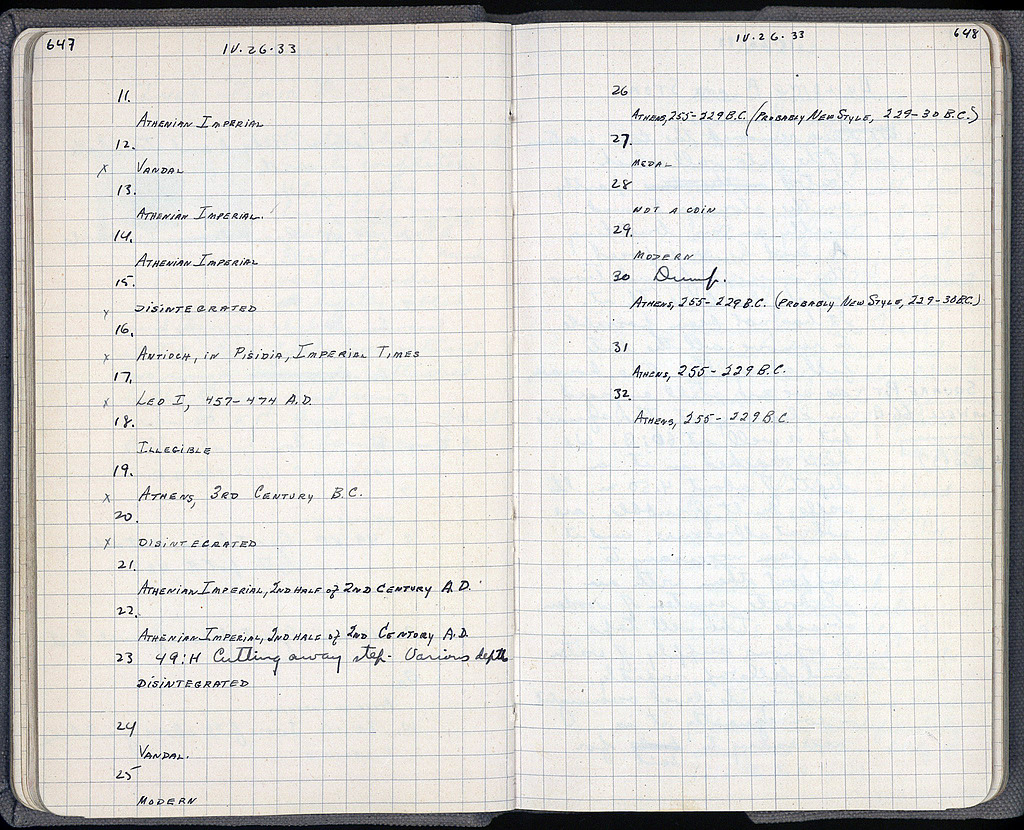 647
IV.26.33
11.
ATHENIAN IMPERIAL
12.
x VANDAL
13.
ATHENIAN IMPERIAL.
14.
ATHENIAN IMPERIAL
15.
x DISINTEGRATED
16.
x ANTIOCH, IN PISIDIA, IMPERIAL TIMES
17.
x LEO I, 457-474 A.D.
18.
ILLEGIBLE
19.
x ATHENS, 3RD CENTURY B.C.
20.
x DISINTEGRATED
21.
ATHENIAN IMPERIAL, 2ND HALF of 2ND CENTURY A.D.
22.
ATHENIAN IMPERIAL, 2ND HALF of 2ND CENTURY A.D.
23 49:H Cutting away step. Various depth
DISINTEGRATED
24
VANDAL.
25
MODERN
IV.26.33
648
26
ATHENS, 255-229 B.C. (PROBABLY NEW STYLE, 229-30 B.C.)
27.
MEDAL
28
NOT A COIN
29.
MODERN
30 Dump.
ATHENS, 255-229 B.C. (PROBABLY NEW STYLE, 229-30 B.C.)
31
ATHENS, 255-229 B.C.
32.
ATHENS, 255-229 B.C.